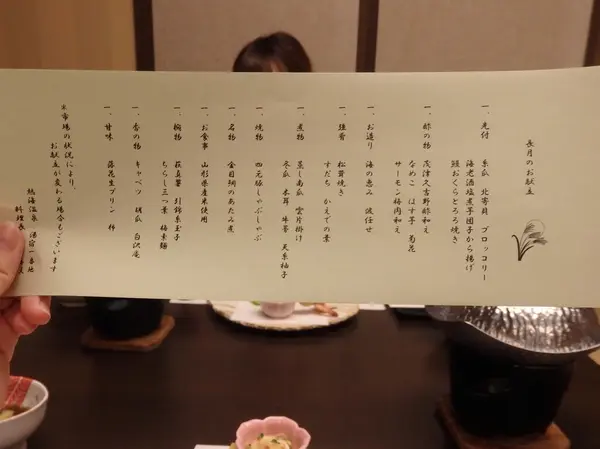 長月のお献立
一、先付 糸瓜 北寄貝 ブロッコリー
海老酒塩煮芋団子から揚げ
鰻おくらとろろ焼き
一、酢の物 茂津久吉野酢和え
なめこ はす芋 菊花
サーモン梅肉和え
一、お造り 海の恵み 波任せ
一、強肴 松茸焼き
すだち かえでの葉
一、煮物 蒸し南瓜 雲片掛け
冬瓜 木耳 牛蒡 天糸柚子
一、焼物 四元豚しゃぶしゃぶ
一、名物 金目鯛のあたみ煮
一、お食事 山形県産米使用
一、椀物 萩真薯 刻錦糸玉子
ちらし三つ葉 梅素麺
一、香の物 キャベツ 胡瓜 白沢庵
一、甘味 落花生プリン 柿
※市場の状況により、
お献立が変わる場合もございます
熱海温泉 湯宿一番地
料理長